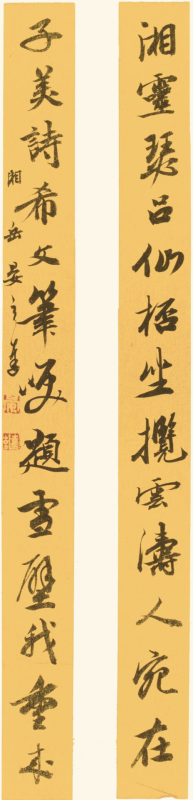 湘靈瑟呂仙桮坐攬雲濤人宛在
子美詩希文筆咲題雪壁我重來
湘岳晏之